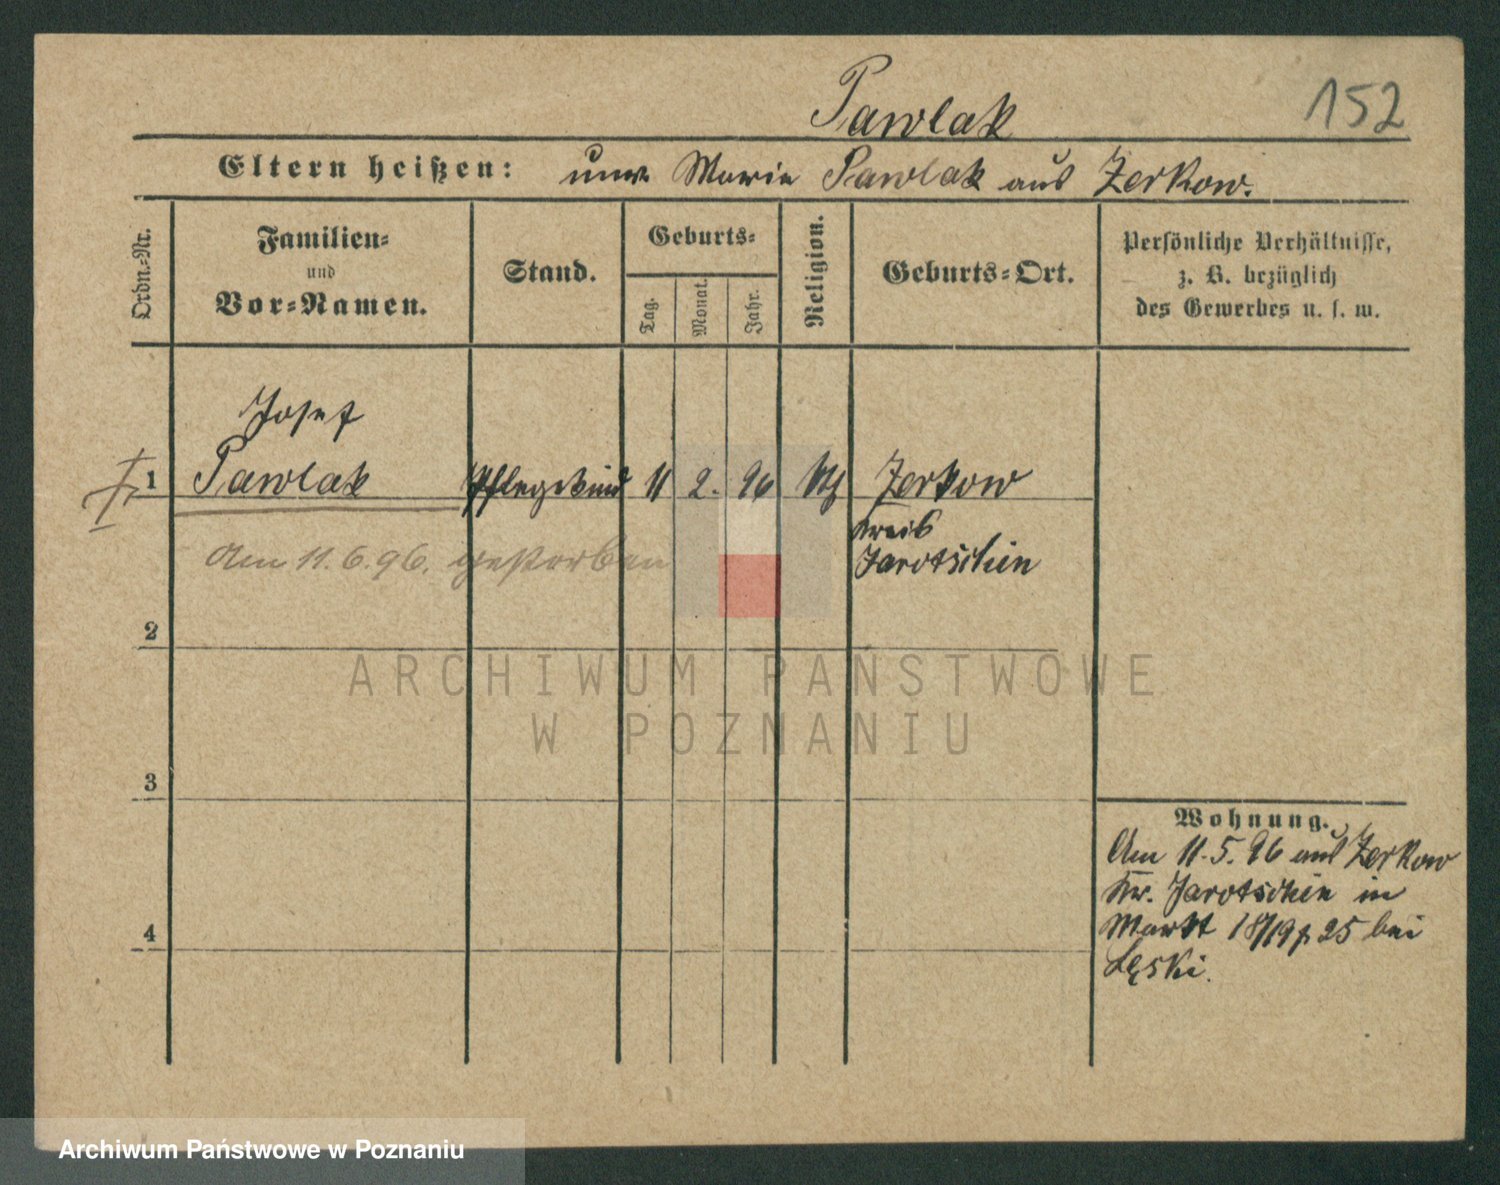 Pawlak
152
Eltern heißen: unv. Marie Pawlak aus Zerkow.
Ordn.-Nr.
Familien-
und
Vor-Namen.
Stand.
Geburts-
Tag.
Monat.
Jahr.
Religion.
Geburts-Ort.
Persönliche Verhältnisse,
z. B. bezüglich
des Gewerbes u. s. w.
Josef
1 Pawlak Pflegekind 11 2. 96 kth Zerkow
Kreis
Jarotschin
Am 11.6.96. gestorben
2
3
4
Wohnung.
Am 11.5.96 aus Zerkow
Kr. Jarotschin in
Markt 18/19 p 25 bei
Łęski.
ARCHIWUM PAŃSTWOWE
W POZNANIU
Archiwum Państwowe w Poznaniu